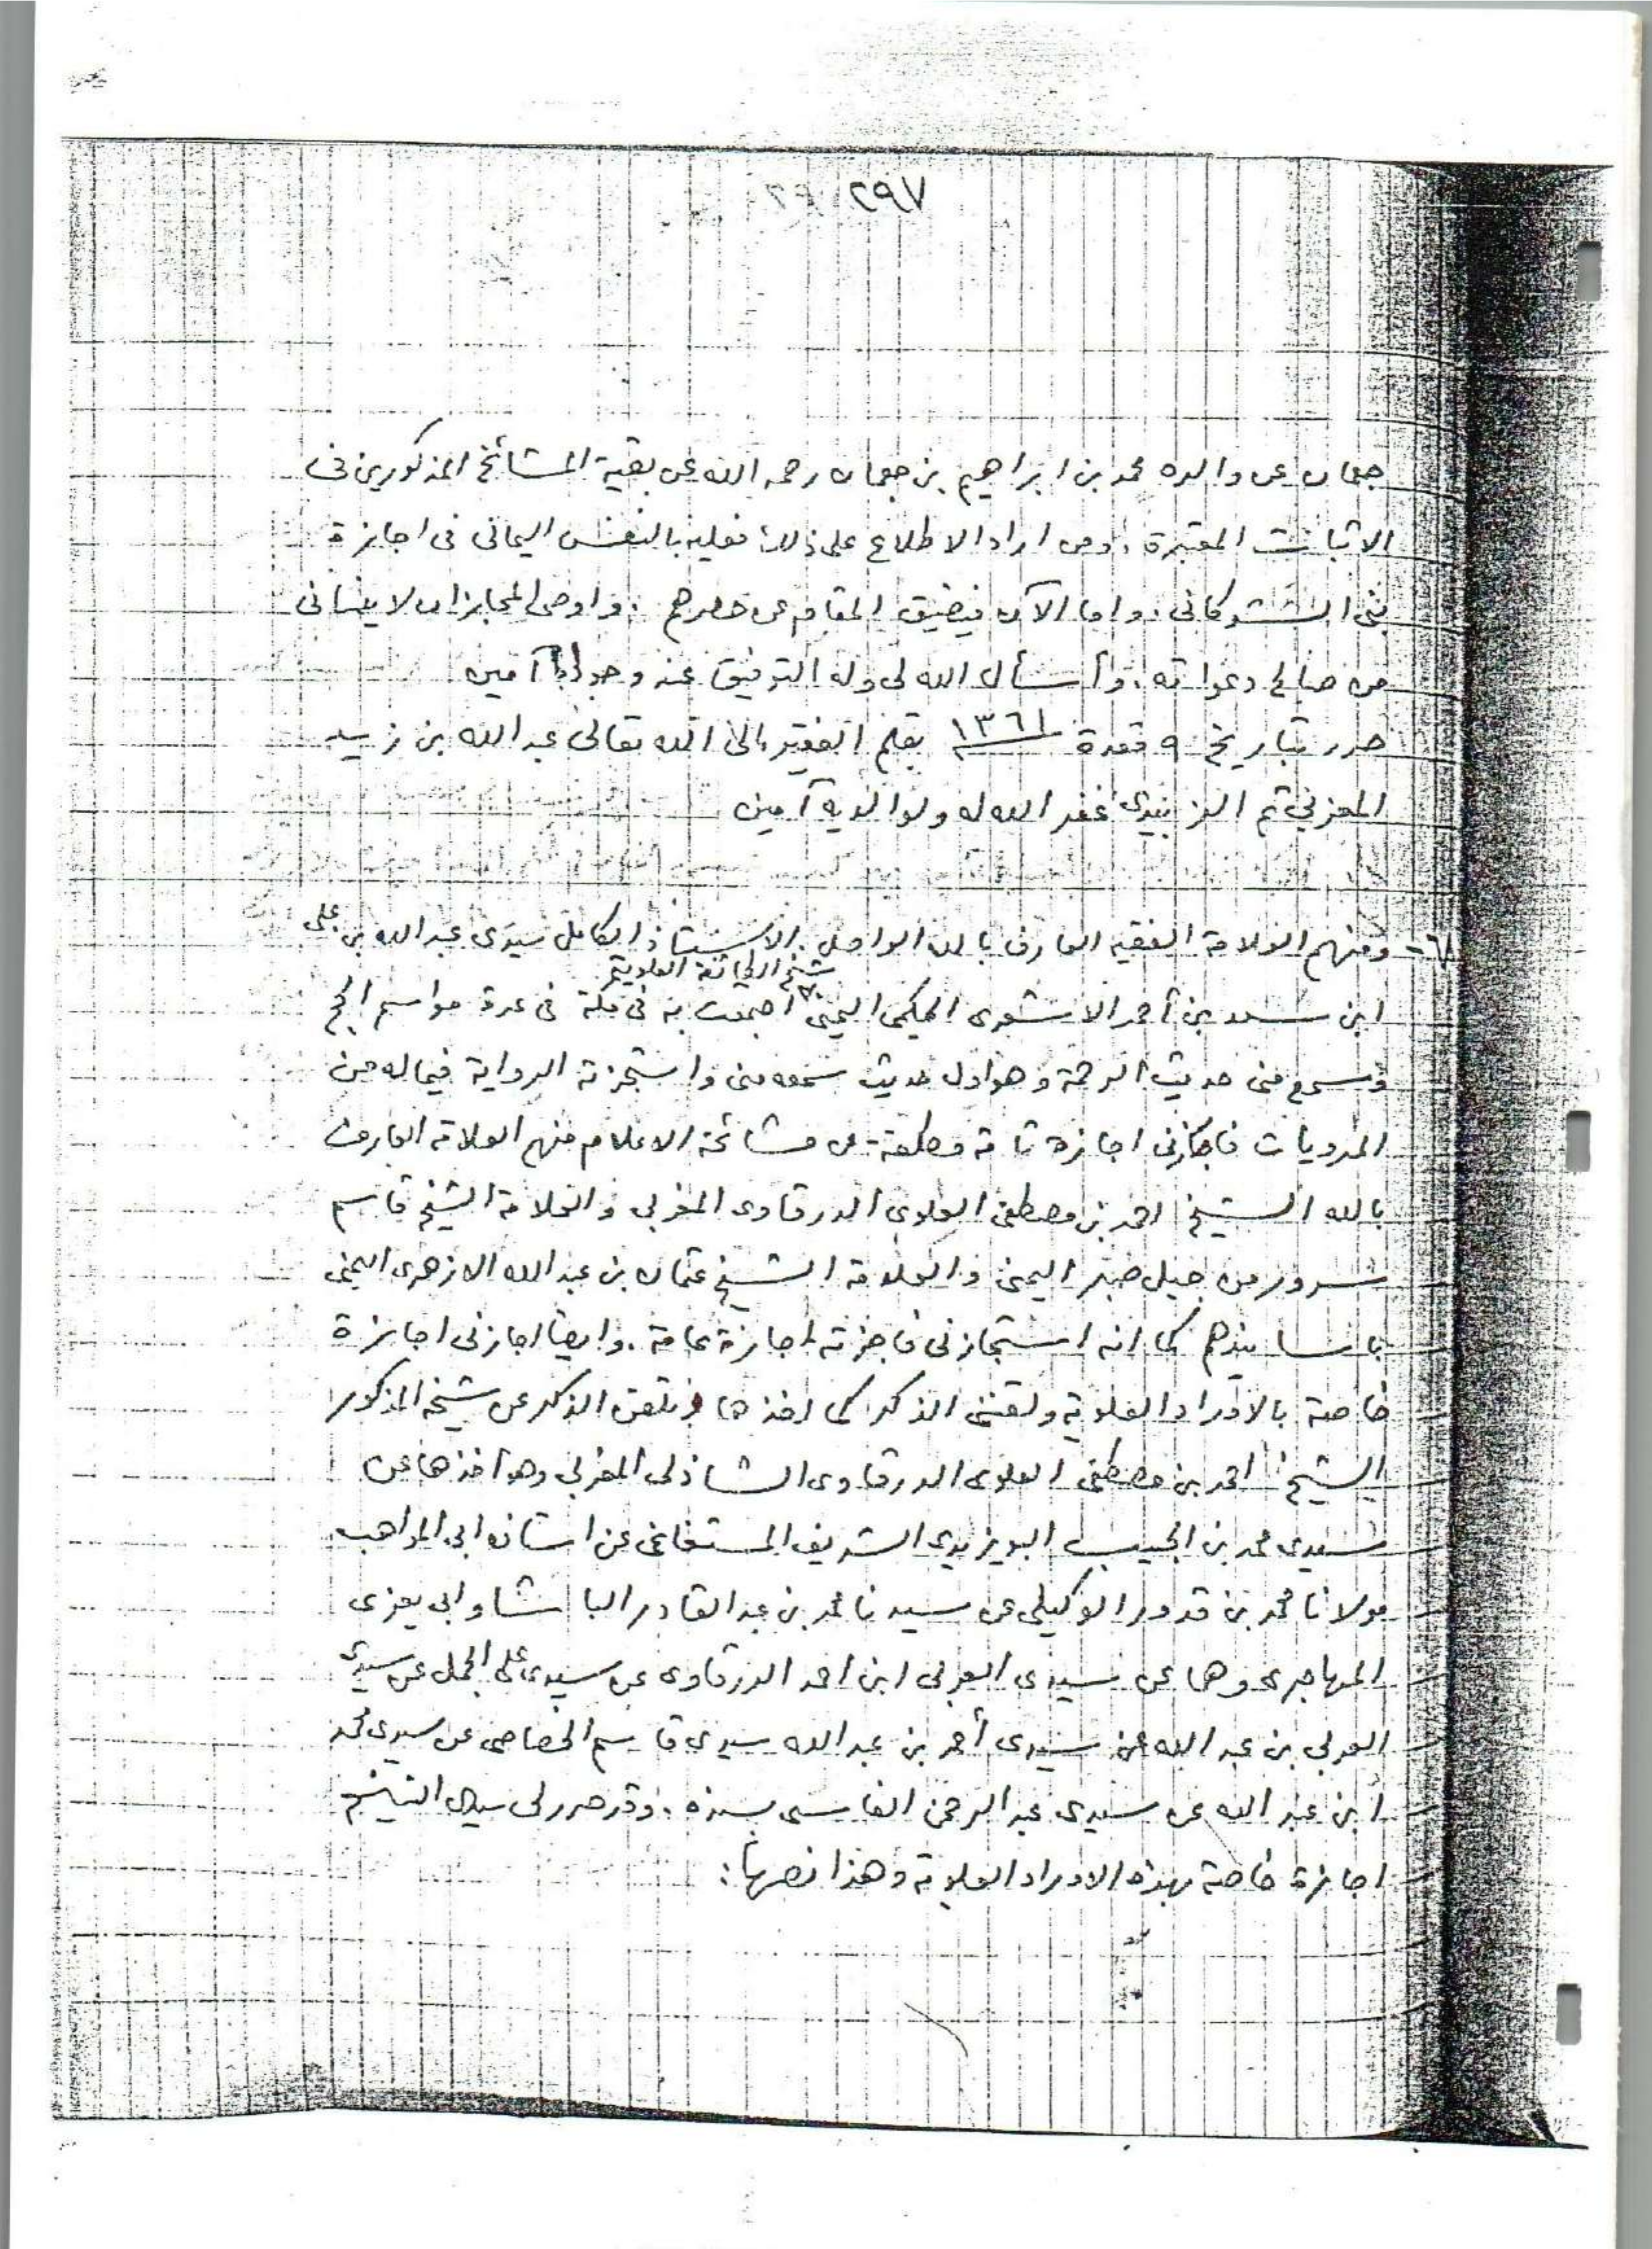 ٢٩٧
جعمان عن والده محمد بن ابراهيم بن جعمان رحمه الله عن بقية المشائخ المذكورين فى
الاثبات المعتبرة. ومن اراد الاطلاع على ذلك فعليه بالنفس اليمانى فى اجازة
بنى الشوكانى. واما الآن فيضيق المقام عن حصرهم. واوصى المجاز ان لا ينسانى
من صالح دعواته. وأسأل الله لى وله التوفيق آمين
حرر بتاريخ ٩ قعدة ١٣٦١ بقلم الفقير الى الله تعالى عبد الله بن زيد
المعزبي ثم الزبيدى غفر الله له ولوالديه آمين
٦٨- ومنهم العلامة الفقيه العارف بالله الواصل. الاستاذ الكامل سيدى عبد الله بن على
شيخ الطائفة العلوية
ابن سعد بن أحمد الاشعرى الحكمى اليمنى اجتمعت به فى مكة فى عدة مواسم الحج
وسمع منى حديث الرحمة وهو اول حديث سمعه منى واستجزته الرواية فيما له من
المرويات فاجازنى اجازة تامة مطلقة عن مشائخه الاعلام منهم العلامة العارف
بالله الشيخ احمد بن مصطفى العلوى الدرقاوى المغربى والعلامة الشيخ قاسم
سرور من جبل صبر اليمنى والعلامة الشيخ عثمان بن عبد الله الازهرى اليمنى
باسانيدهم كما انه استجازنى فاجزته اجازة عامة. وايضا اجازنى اجازة
خاصة بالاوراد العلوية ولقننى الذكر كما اخذها وتلقن الذكر عن شيخه المذكور
الشيخ احمد بن مصطفى العلوى الدرقاوى الشاذلى المغربى وهو أخذها عن
سيدى محمد بن الحبيب البوزيدى الشريف المستغانمى عن استاذه ابى المواهب
مولانا محمد بن قدور الوكيلى عن سيدنا محمد بن عبد القادر الباشا وابى يعزى
المهاجرى وهما عن سيدى العربى ابن احمد الدرقاوى عن سيدى على الجمل عن سيدى
العربى بن عبد الله عن سيدى أحمد بن عبد الله سيدى قاسم الخصاصى عن سيدى محمد
ابن عبد الله عن سيدى عبد الرحمن الفاسى بسنده. وقد حرر لى سيدى الشيخ
اجازة خاصة بهذه الاوراد العلوية وهذا نصها: